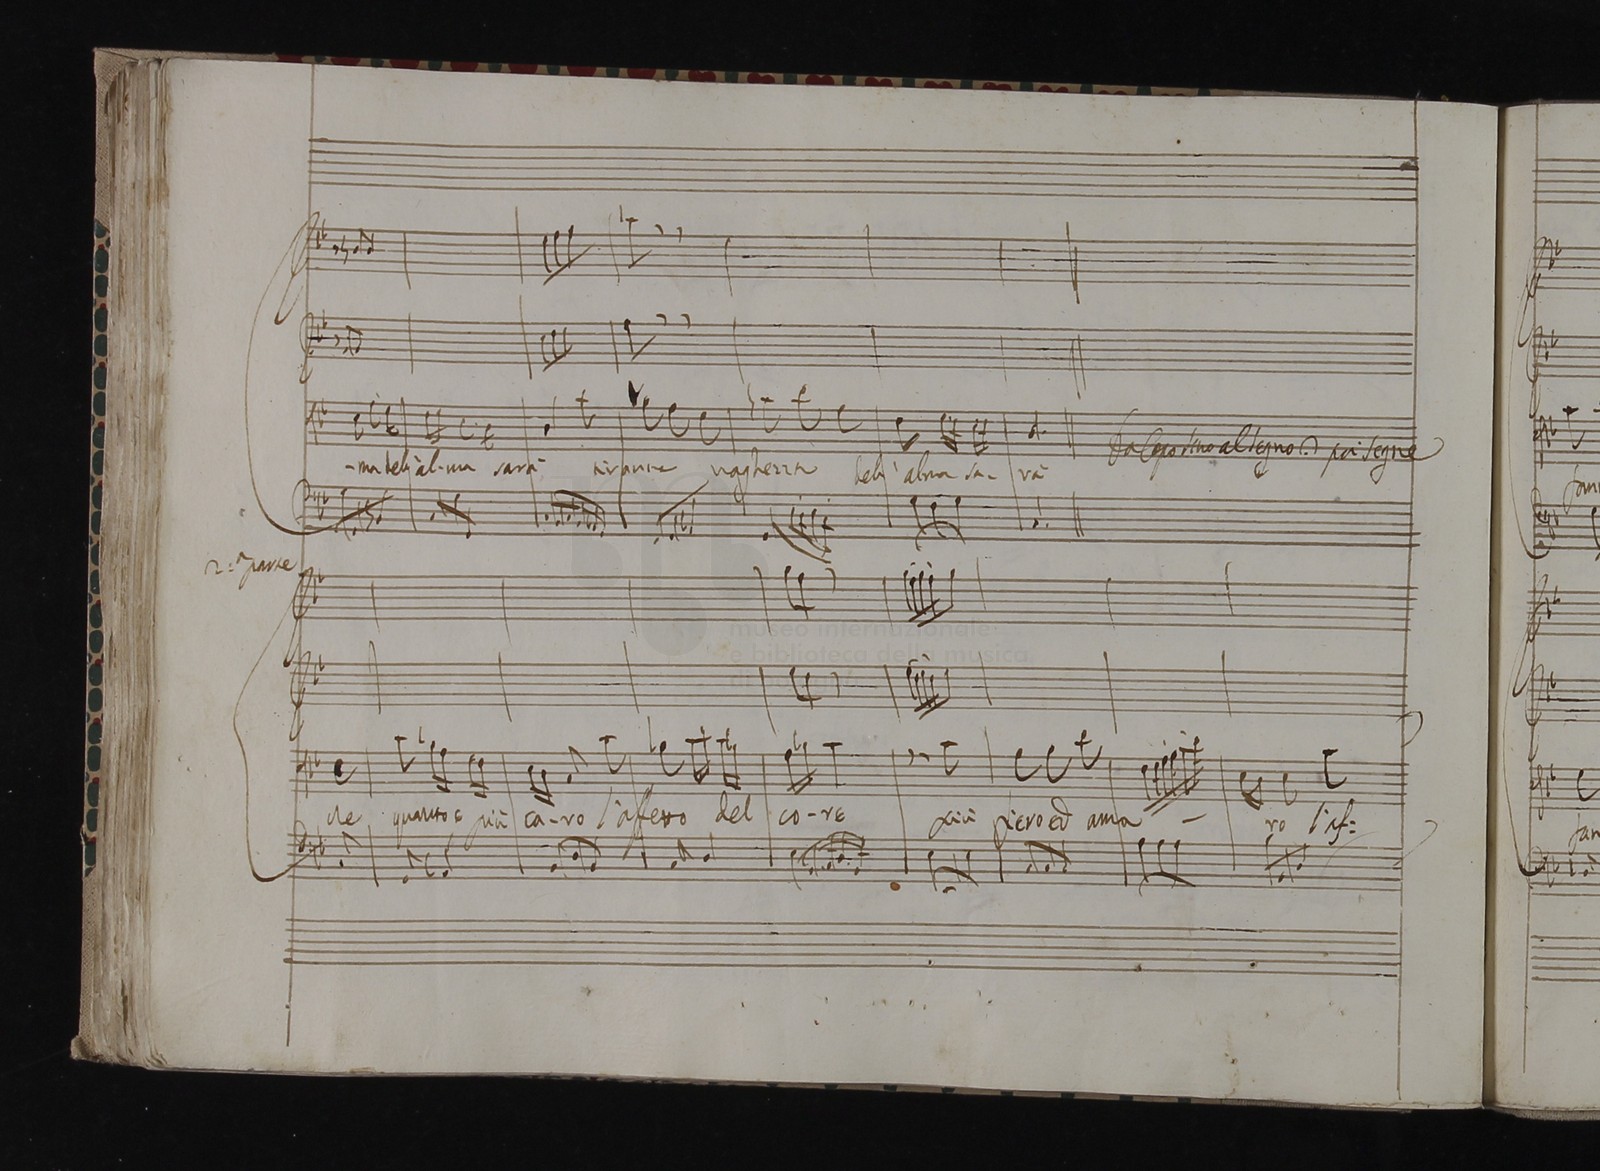 -ma dell'al-ma sarà tiranna vaghezza dell'alma sa- rà
Da Capo sino al segno poi segue
2.ª parte
che quanto è più ca-ro l'affetto del co-re più fiero ed ama - ro l'af:
museo internazionale
e biblioteca della musica